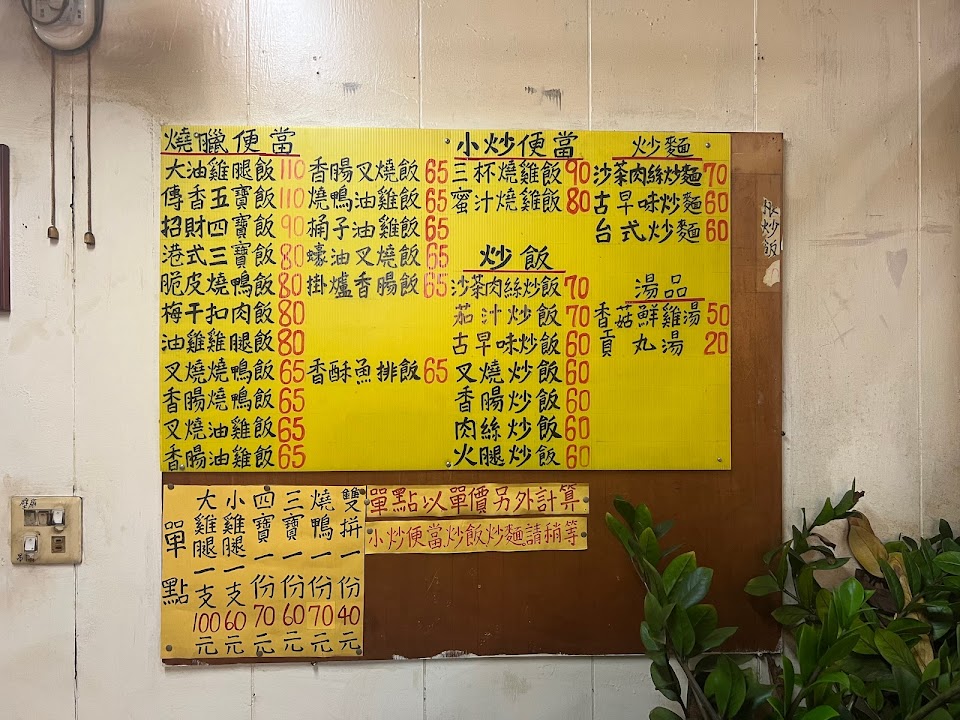 燒臘便當
大油雞腿飯110
傳香五寶飯110
招財四寶飯90
港式三寶飯80
脆皮燒鴨飯80
梅干扣肉飯80
油雞雞腿飯80
叉燒燒鴨飯65
香腸燒鴨飯65
叉燒油雞飯65
香腸油雞飯65
香腸叉燒飯65
燒鴨油雞飯65
桶子油雞飯65
蠔油叉燒飯65
掛爐香腸飯65
香酥魚排飯65
小炒便當
三杯燒雞飯90
蜜汁燒雞飯80
炒飯
沙茶肉絲炒飯70
茄汁炒飯70
古早味炒飯60
叉燒炒飯60
香腸炒飯60
肉絲炒飯60
火腿炒飯60
炒麵
沙茶肉絲炒麵70
古早味炒麵60
台式炒麵60
湯品
香菇鮮雞湯50
貢丸湯20
單點
大雞腿一支100元
小雞腿一支60元
四寶一份70元
三寶一份60元
燒鴨一份70元
雙拼一份40元
單點以單價另外計算
小炒便當,炒飯,炒麵請稍等
炒飯